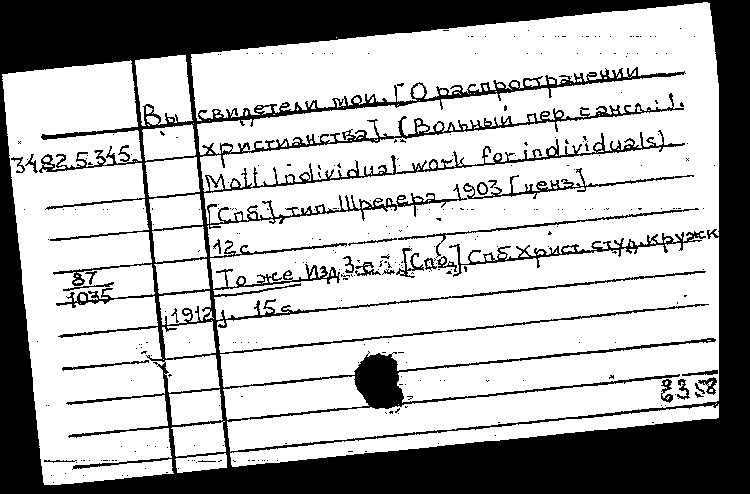 Вы свидетели мои. [О распространении
34.82.5.345. христианства]. (Вольный пер. с англ.: J.
Mott. Individual work for individuals).
[Спб.], тип. Шредера, 1903 [ценз.].
12 с.
87 То же. Изд. 3-е. [Спб.], Спб. Христ. студ. кружк
1035
[1912]. 15 с.
6358